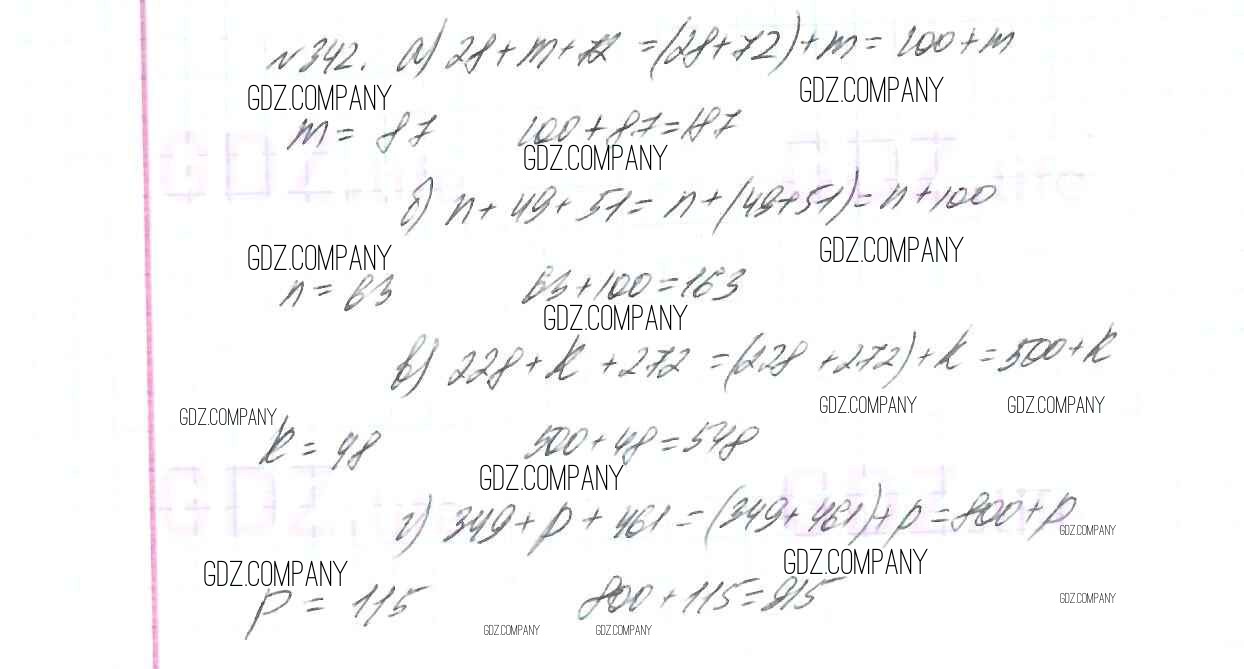 №342. а) 28+m+72 =(28+72)+m= 100+m
GDZ.COMPANY GDZ.COMPANY
m= 87 100+87=187
GDZ.COMPANY
б) n+49+51= n+(49+51)= n+100
GDZ.COMPANY GDZ.COMPANY
n= 63 63+100=163
GDZ.COMPANY
в) 228+k+272 =(228+272)+k =500+k
GDZ.COMPANY GDZ.COMPANY GDZ.COMPANY
k= 48 500+48=548
GDZ.COMPANY
г) 349+p+461=(349+461)+p=800+p
GDZ.COMPANY
GDZ.COMPANY GDZ.COMPANY
p= 115 800+115=915
GDZ.COMPANY
GDZ.COMPANY GDZ.COMPANY